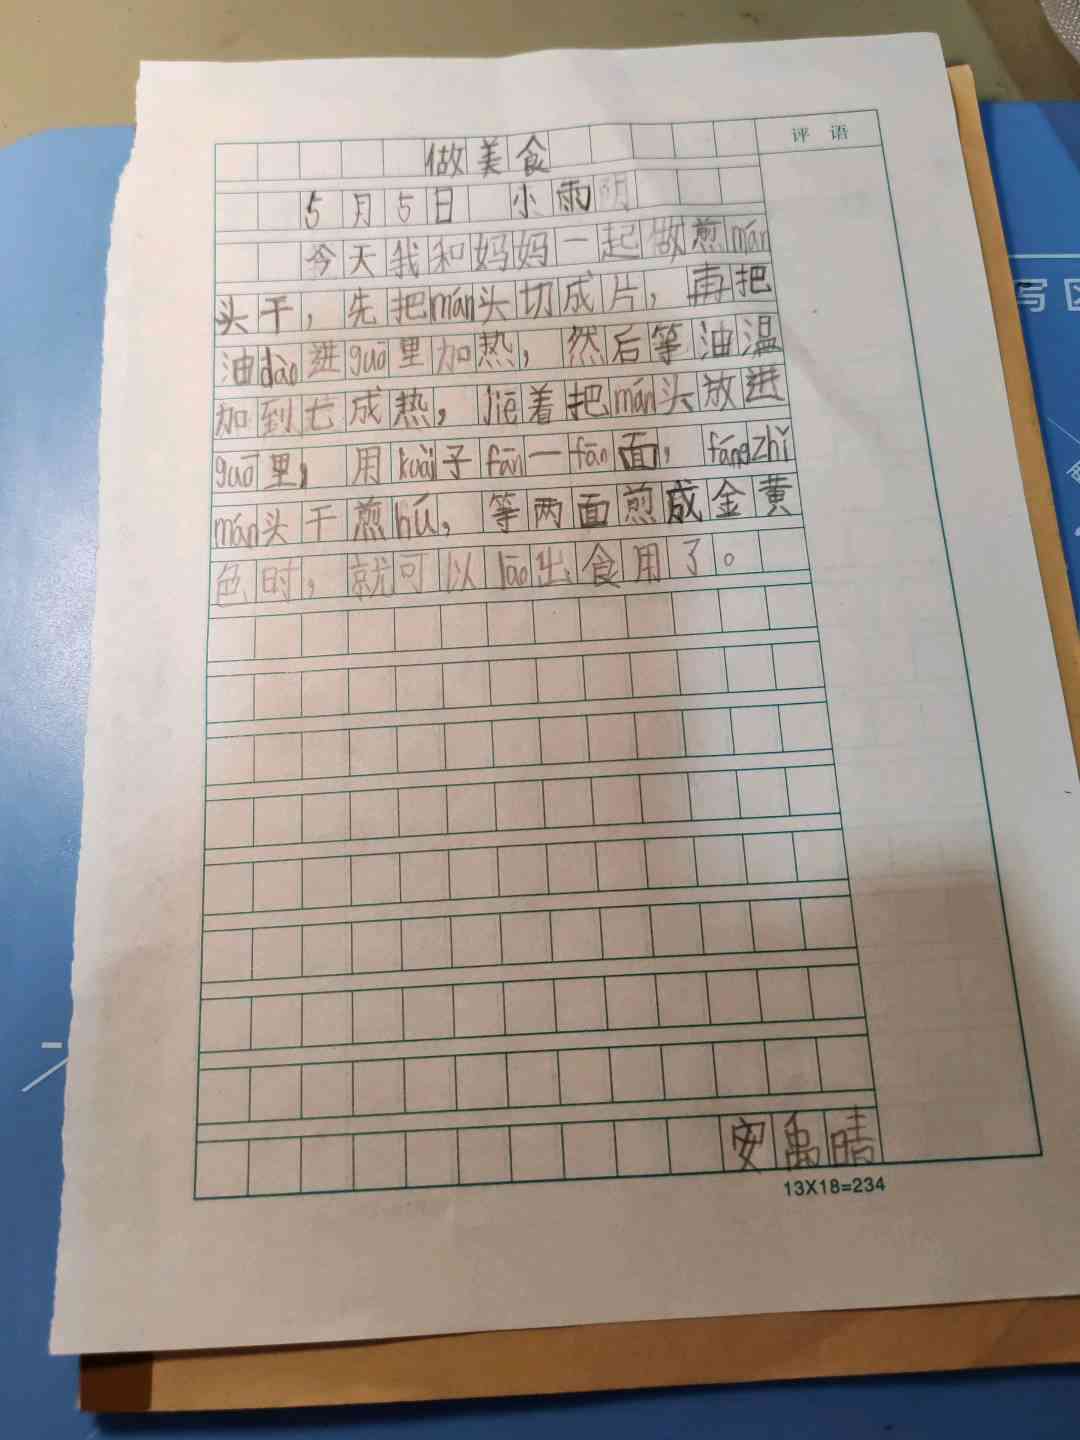 评 语
做美食
5月5日 小雨
今天我和妈妈一起做煎mán
头干，先把mán头切成片，再把
油dào进guō里加热，然后等油温
加到七成热，jiē着把mán头放进
guō里，用kuài子fān一fān面，fángzhǐ
mán头干煎hú，等两面煎成金黄
色时，就可以lāo出食用了。
安禹晴
13X18=234
写